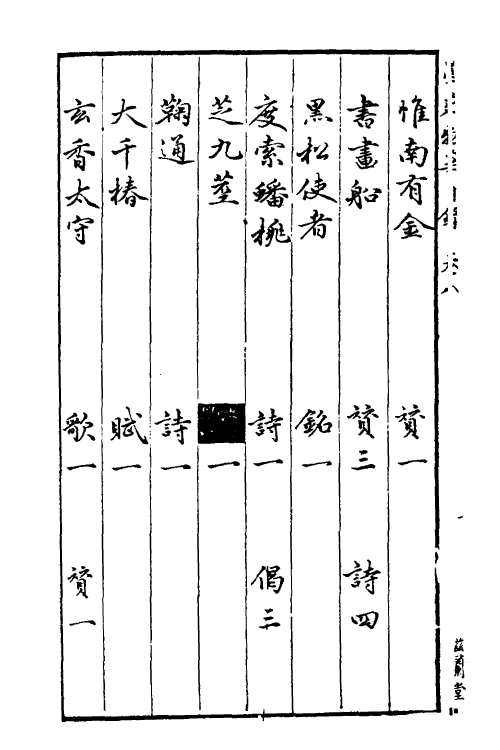 惟南有金　贊一
書畫船　贊三　詩四
黑松使者　銘一
度索蟠桃　詩一　偈三
芝九莖　一
鞠通　詩一
大千椿　賦一
玄香太守　歌一　贊一